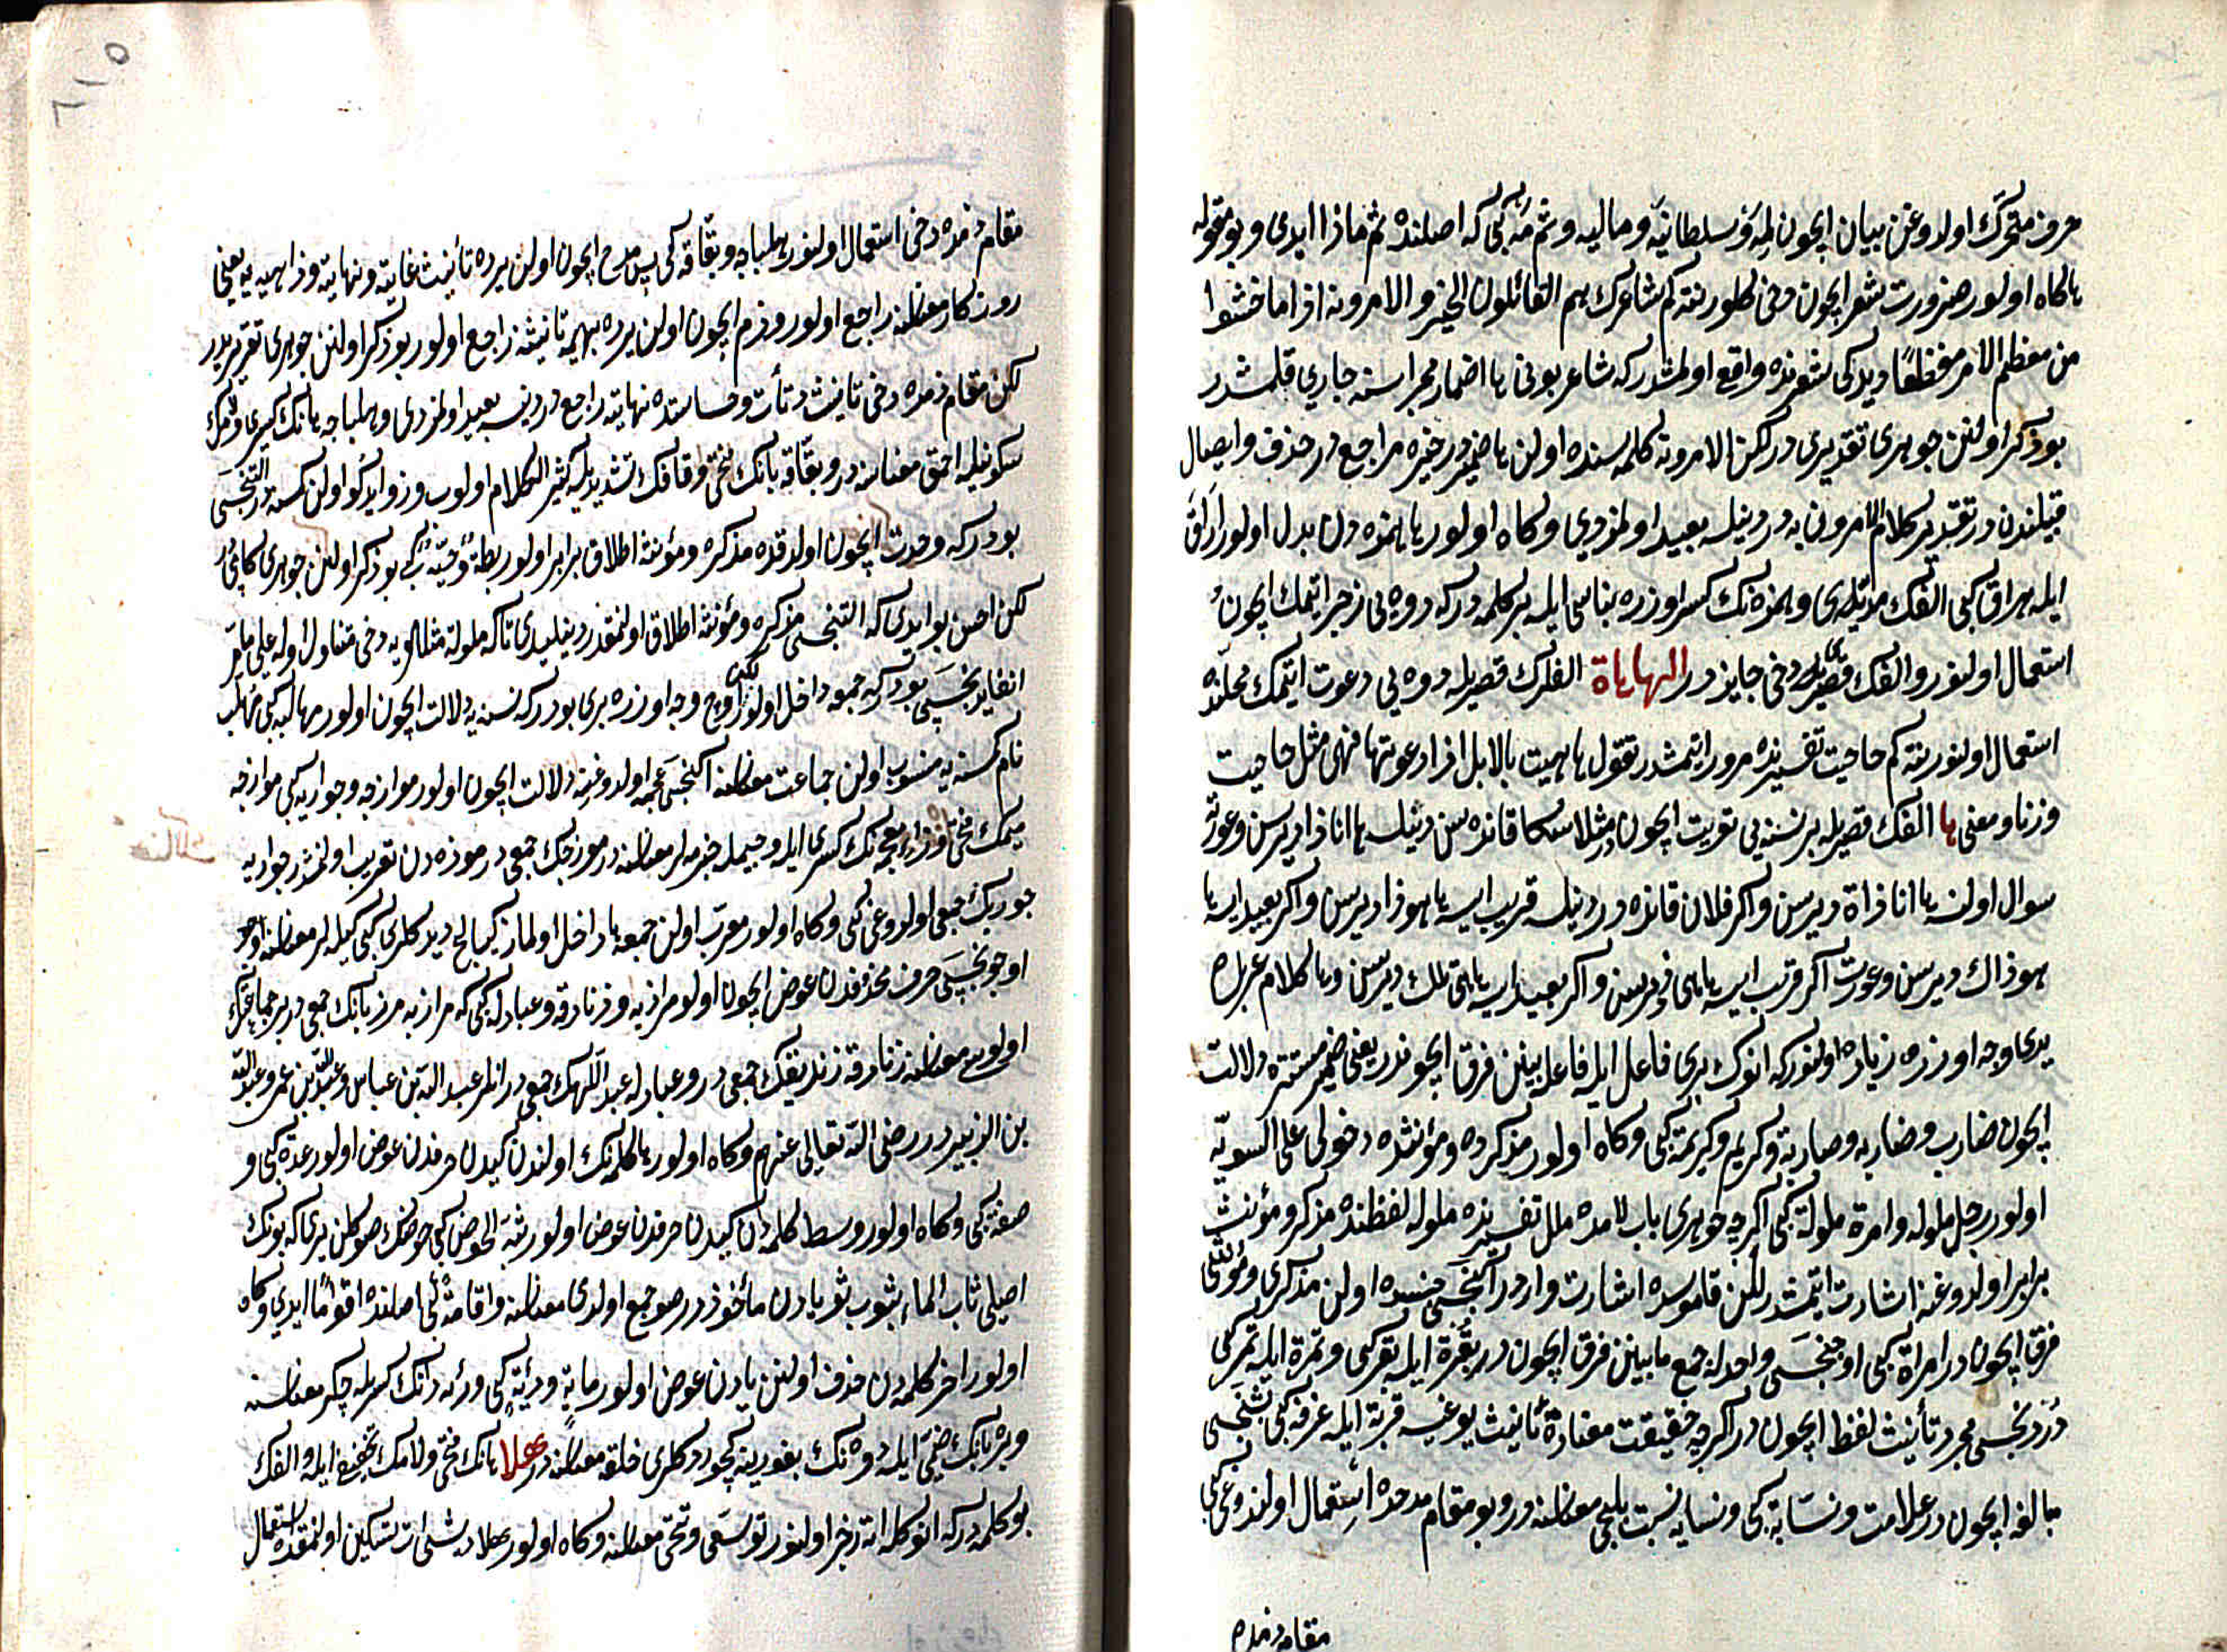 حرف متحرك اولدوغن بيان ايچون لمه و سلطانيه و ماليه و ثم مه كبى كه اصلنده ثم ماذا ايدى و بو مقوله
ها كاه اولور ضرورت شعر ايچون دخى كلور نته كم شاعرك هم القائلون الخير و الامرونه اذا ما خشوا
من معظم الامر مفظعا ديدكى شعرنده واقع اولمشدر كه شاعر بونى ها اضمار مجراسنه جارى قلمشدر
بو ذكر اولنن جوهرى تقديرى در لكن الامرونه كلمه سنده اولن ها ضمير در خيره راجع در حذف و ايصال
قبيلندن در تقدير كلام الامرون به در دينلسه بعيد اولمزدى و كاه اولور ها همزه دن بدل اولور اراق
ايله هراق كبى الفك مديله و همزه نك كسر اوزره بناسى ايله بر كلمه در كه دوه يى زجر ايتمك ايچون
استعمال اولنور و الفك قصريله دخى جايز در الهاهاة الفلرك قصريله دوه يى دعوت ايتمك محلنده
استعمال اولنور نته كم حاحيت تفسيرنده مرور ايتمشدر تقول هاهيت بالابل اذا دعوتها فهى مثل حاحيت
وزنا و معنى ها الفك قصريله بر نسنه يى تقريب ايچون در مثلا سكا قانده سن دينلسه ها انا ذا ديرسن و عورته
سوال اولنسه ها انا ذاة ديرسن و اكر فلان قانده در دينلسه قريب ايسه ها هو ذا ديرسن و اكر بعيد ايسه ها
هو ذاك ديرسن و عورت اكر قريب ايسه ها هى ذه ديرسن و اكر بعيد ايسه ها هى تلك ديرسن و ها كلام عربده
يدى وجه اوزره زياده اولنور كه انوك برى فاعل ايله فاعله بينن فرق ايچوندر يعنى ضمير مستتره دلالت
ايچون ضارب و ضاربه و صاربة و كريم و كريمة كبى و كاه اولور مذكرده و مؤنثده دخولى على السويه
اولور رجل ملولة و امرة ملولة كبى اكرچه جوهرى باب لامده ملل تفسيرنده ملوله لفظنده مذكر و مؤنث
برابر اولدوغنه اشارت ايتمشدر لكن قاموسده اشارت واردر ايكنجسى جنسده اولن مذكرى و مؤنثى
فرق ايچون در امراة كبى اوچنجسى واحدله جمع مابينن فرق ايچون در بقرة ايله بقر كبى و تمرة ايله تمر كبى
دردنجسى مجرد تأنيث لفظ ايچون در اكرچه حقيقت معناده تأنيث يوغسه قربة ايله غرفه كبى بشنجسى
مبالغه ايچون در علامت و نسابة كبى و نسابه نسبت بلجى معناسنه در و بو مقام مدحده استعمال اولندوغى كبى
مقام ذمده
مقام ذمده دخى استعمال اولنور هلباجه و بقاقه كبى پس مدح ايچون اولن يرده تأنيث غايته و نهايته و داهيه يه يعنى
روزكار معناسنه راجع اولور و ذم ايچون اولن يرده بهيمه تانيثنه راجع اولور بو ذكر اولنن جوهرى تقريريدر
لكن مقام ذمده دخى تانيث دنأت و خساستده نهايته راجع در دينسه بعيد اولمزدى و هلباجه هانك كسرى و لامك
سكونيله احمق معناسنه در و بقاقه بانك فتحى و قافك تشديديله كثير الكلام اولوب و زوايدكو اولن كسنه در التنجسى
بودر كه وحدت ايچون اولدقده مذكره و مؤنثه اطلاق برابر اولور بطة و حية كبى بو ذكر اولنن جوهرى كلامى
لكن احسن بو ايدى كه التنجسى مذكره و مؤنثه اطلاق اولنمقدر دينيليدى تا كه ملولة مثللويه دخى متناول اوله على ما مر
انفا يدنجسى بودر كه جمعه داخل اولور اوچ وجه اوزره برى بودر كه نسبته دلالت ايچون اولور مهالبه كبى مهلب
نام كسنه يه منسوب اولن جماعت معناسنه ايكنجسى عجمه اولدوغنه دلالت ايچون اولور موازجه و جواربه كبى موازجه
ميمك فتحى و زاء معجمه نك كسرى ايله و جيمله چزمه لر معناسنه در موزجك جمعى در موزه دن تعريب اولنمشدر جواربه
جوربك جمعى اولدوغى كبى و كاه اولور معرب اولن جمعه ها داخل اولماز كيالج ديدكلرى كبى كيله لر معناسنه
اوچونجسى حرف محذوفدن عوض ايچون اولور مرازبه و زنادقه و عبادله كبى كه مرازبه مرزبانك جمعى در بر جماعتك
اولوسى معناسنه زنادقه زنديقك جمعى در و عبادله عبد اللهك جمعى در انلر عبد الله بن عباس و عبد الله بن عمر و عبد الله
بن الزبير در رضى الله تعالى عنهم و كاه اولور ها كلمه نك اولندن كيدن حرفدن عوض اولور عدة كبى و
صفة كبى و كاه اولور وسط كلمه دن كيدن حرفدن عوض اولور ثبة الحوض كبى حوضك صو كلن يرى كه بونك
اصلى ثاب الماء يثوب ثوبا دن مأخوذدر صو جمع اولدى معناسنه و اقامة كبى اصلنده اقواما ايدى و كاه
اولور اخر كلمه دن حذف اولنن يادن عوض اولور ماية و رئة كبى و رئه رانك كسريله جكر معناسنه
و بره بانك ضمى ايله دوه نك بورنينه كچوردكلرى حلقه معناسنه در هلا هانك فتحى و لامك تخفيفى ايله و الفك
بو كلمه در كه انوكله اته زجر اولنور توسعى و تنحى معناسنه و كاه اولور هلا ديشى ات تسكين اولنمقده استعمال